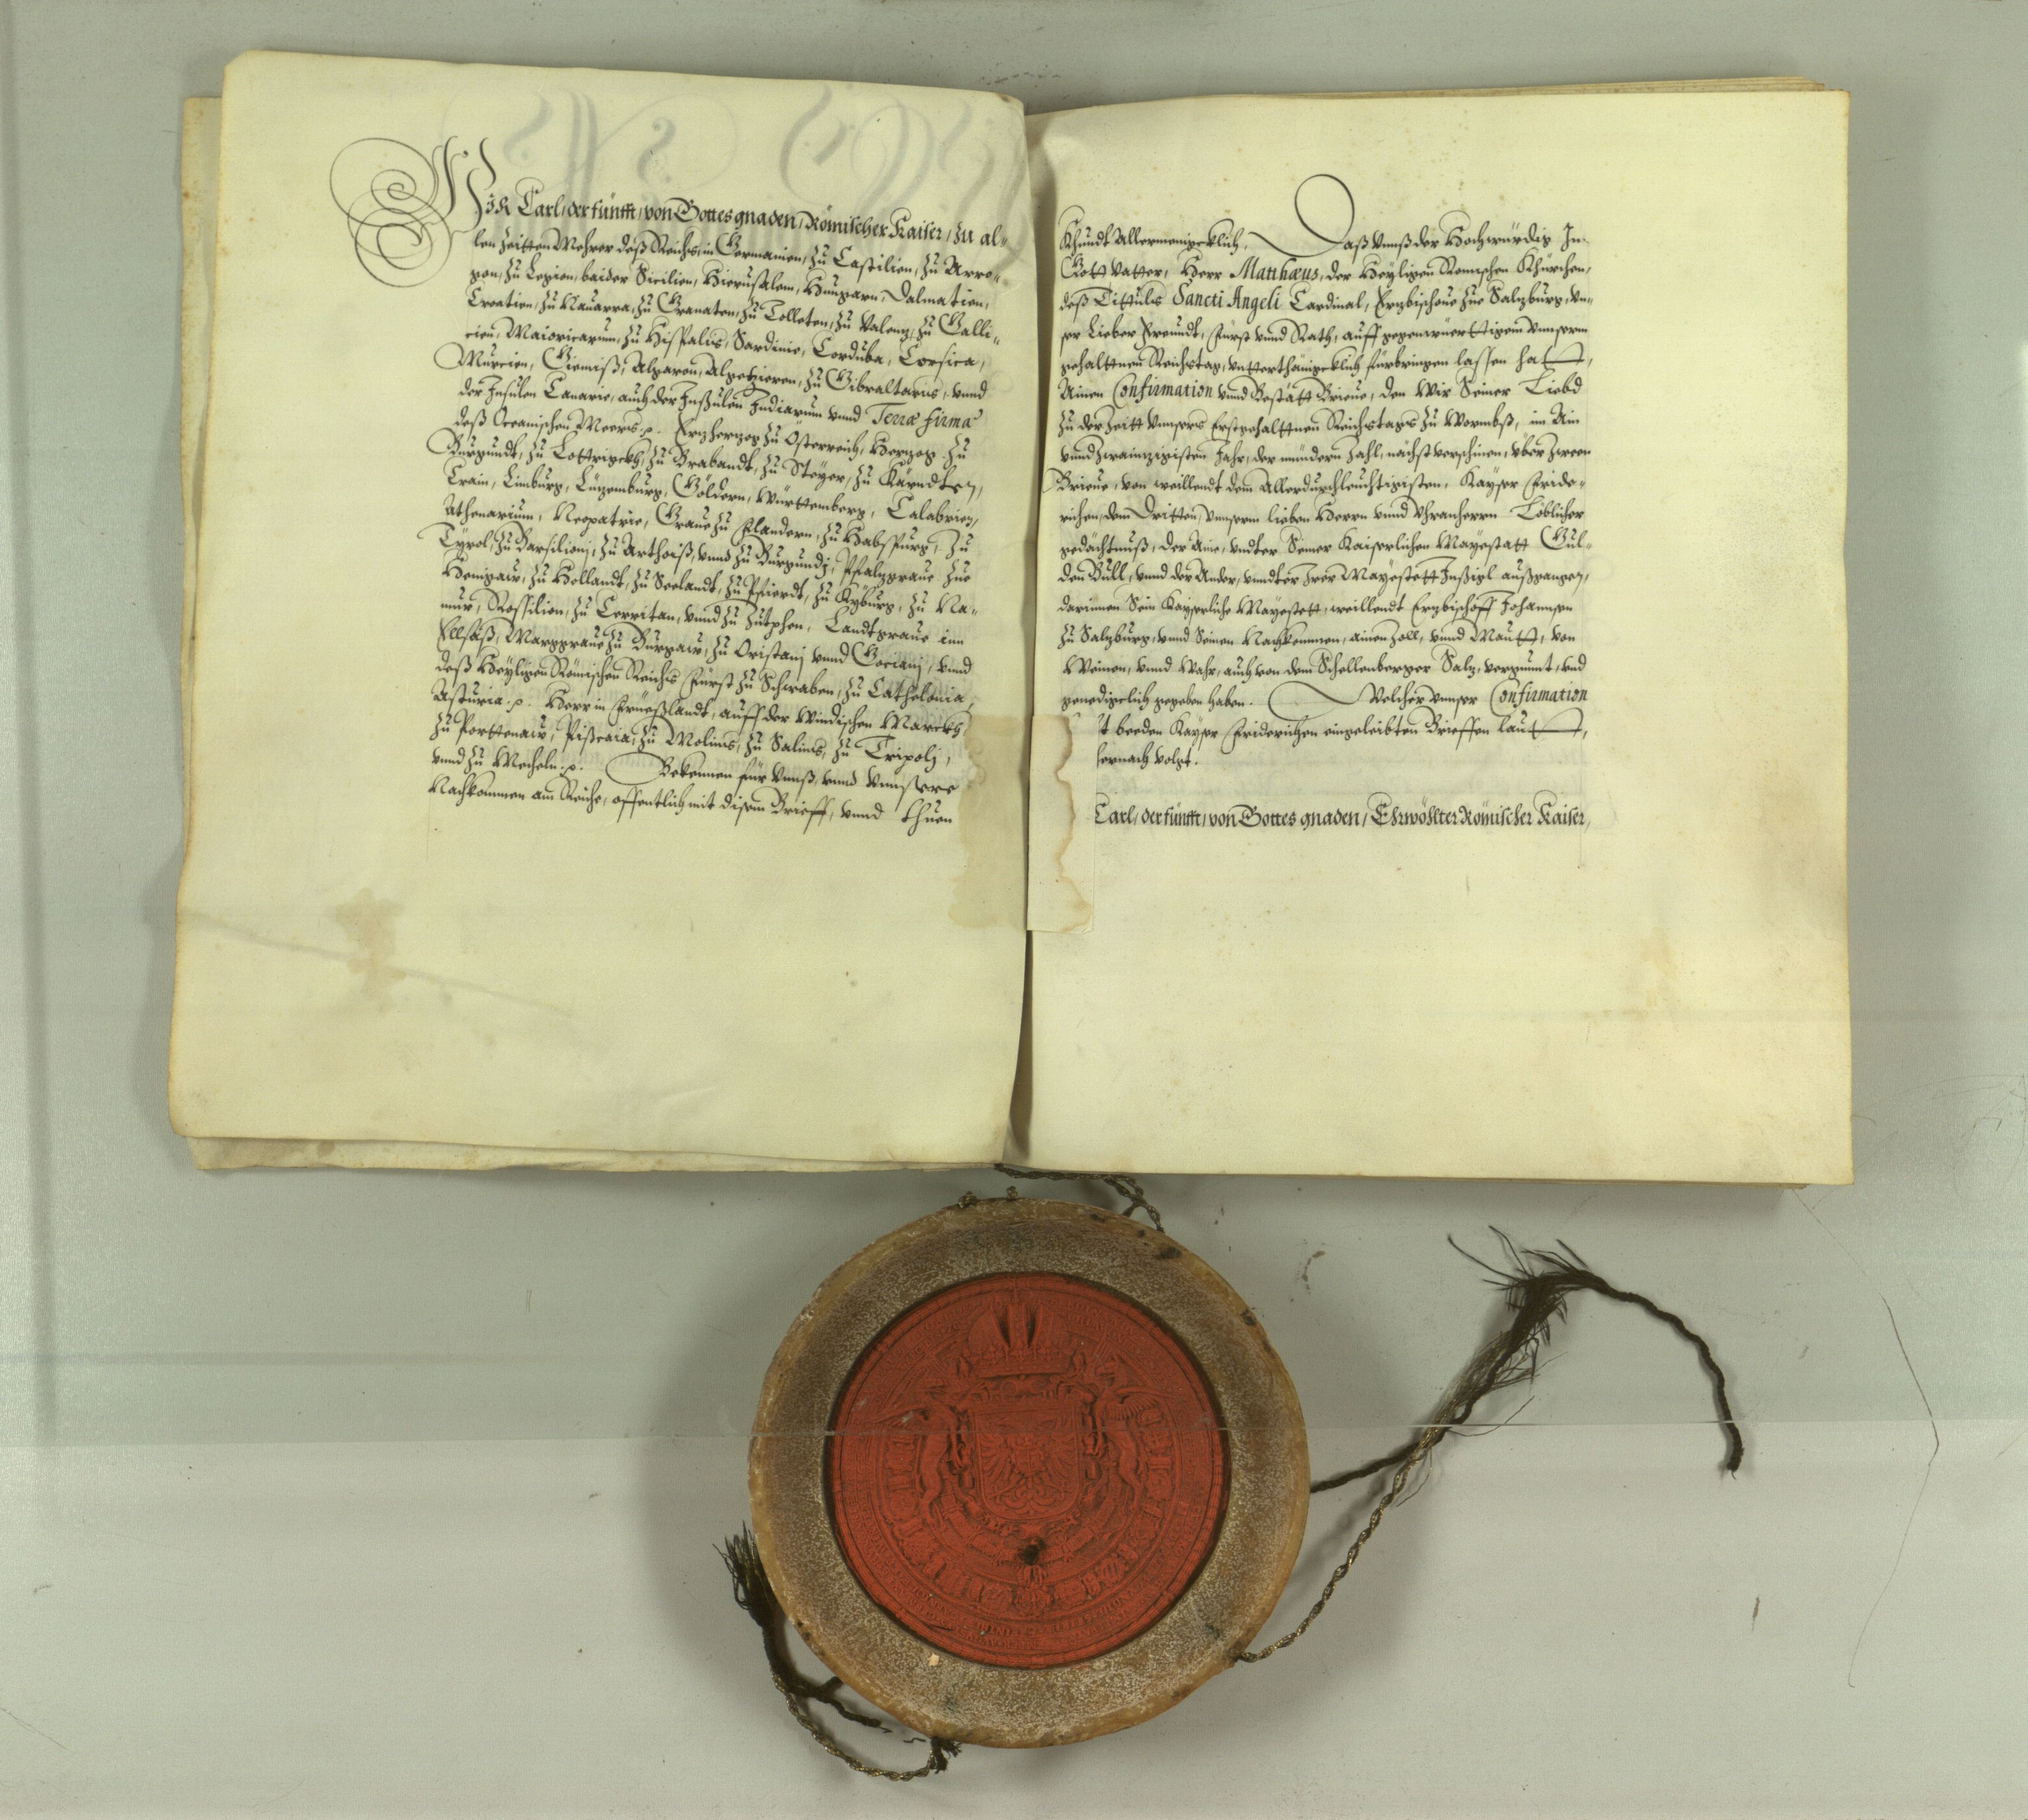 Wir Carl, der fünfft, von Gottes gnaden, Römischer Kaiser, zu al-
len Zeitten Mehrer deß Reichs, in Germanien, zu Castilien, zu Arro-
gon, zu Legion, baider Sicilien, Hierusalem, Hungarn, Dalmatien,
Croatien, zu Nauarra, zu Granaten, zu Tolleten, zu Valenz, zu Galli-
cien, Maioricarum, zu Hispalis, Sardinie, Corduba, Corsica,
Murcien, Giemiß, Algaron, Algeziern, zu Gibraltaris, vnnd
der Insulen Canarie, auch der Inßulen Indiarum vnnd Terræ firmæ
deß Oceanischen Meers .p. Erzherzog zu Österreich, Herzog zu
Burgundt, zu Lottrigckh, zu Brabandt, zu Steyer, zu Kärndten,
Crain, Limburg, Lüzemburg, Göldern, Württemberg, Calabrien,
Athenarium, Neopatrie, Graue zu Flandern, zu Habspurg, zu
Tyrol, zu Barsilionj, zu Arthoiß, vnnd zu Burgundj, Pfalzgraue zue
Henigaw, zu Hollandt, zu Seelandt, zu Pfierdt, zu Kyburg, zu Na-
mur, Rossilion, zu Cerritan, vnnd zu Zutphen, Landtgraue inn
Ellsäß, Marggraue zu Burgaw, zu Oristanj vnnd Gocianj, vnnd
deß Heyligen Römischen Reichs Fürst zu Schwaben, zu Cathelonia,
Asturia .p. Herr in Frießlandt, auff der Windischen Marckh,
zu Porttenaw, Pißcaia, zu Molins, zu Salins, zu Tripolj,
vnnd zu Mecheln .p. Bekennen für Vnnß, vnnd Vnnsere
Nachkommen am Reiche, offentlich mit disem Brieff, vnnd thuen
Khundt Allermenigcklich, Daß Vnnß der Hochwürdig In
Gott Vatter, Herr Matthæus, der Heyligen Romischen Khürchen,
deß Tittuls Sancti Angeli Cardinal, Erzbischoue zue Salzburg, vn-
ser Lieber Freundt, Fürst vnnd Rath, auff gegenwürttigem vnnserm
gehalttnen Reichstag, vntterthänigcklich fürbringen lassen hat,
Ainen Confirmation vnnd Bestätt Brieue, den Wir Seiner Liebd
zu der Zeitt Vnnsers Erstgehalttnen Reichstags zu Wormbß, im Ain
vnnd zwainzigisten Jahr, der mündern Zahl, nächst verschinen, über zween
Brieue, von weillendt dem Allerdurchleuchtigisten, Kayser Fride-
richen, dem Dritten, vnnserm lieben Herrn vnnd Vhranherrn Löblicher
gedächtnuß, der Aine, vndter Seiner Kaiserlichen Mayestatt Gul-
den Bull, vnnd der Ander, vnndter Irer Mayestett Inßigl außgangen,
darinnen Sein Kayserliche Mayestett, weillendt Erzbischoff Johannsen
zu Salzburg, vnnd Seinen Nachkommen, ainen Zoll, vnnd Mautt, von
Weinen, vnnd Wahr, auch von dem Schellenberger Salz, vergunnt, vnd
genedigclich gegeben haben. Welcher vnnser Confirmation
t beeden Kayser Friderichen eingeleibten Brieffen laut,
hernach volgt.
Carl, der fünfft, von Gottes gnaden, Ehrwöhlter Römischer Kaiser,